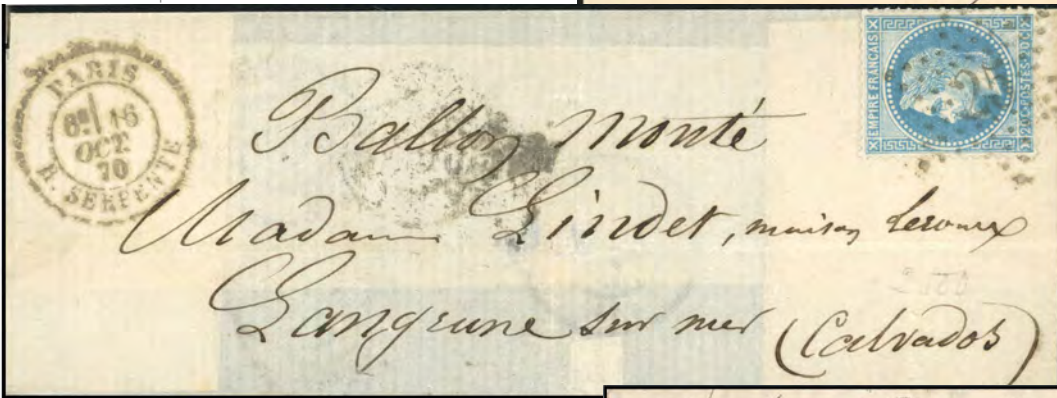 PARIS
6E 16
OCT.
70
R. SERPENTE
EMPIRE FRANÇAIS
20 C POSTES 20 C
25
Ballon monté
Madame Lindet, maison Leroux
Langrune sur mer (Calvados)